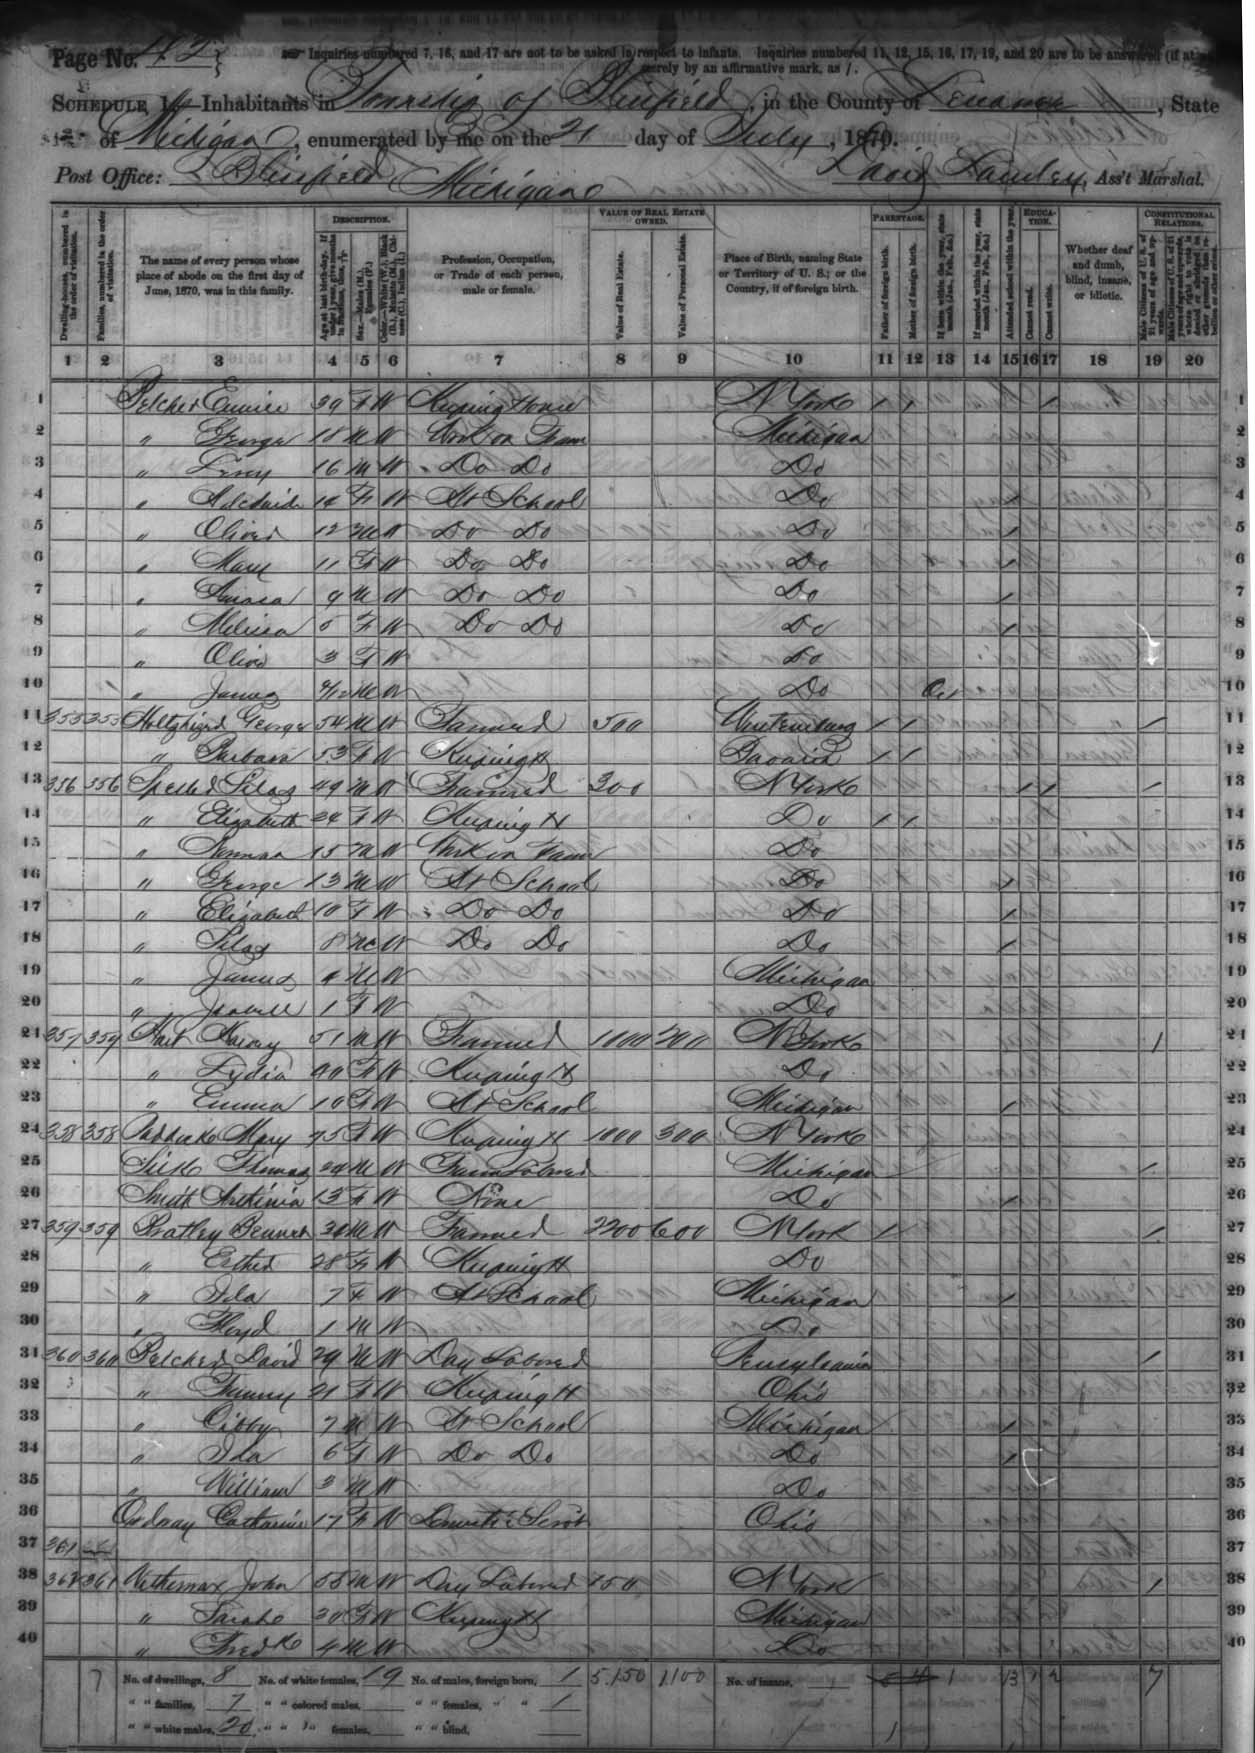 Page No. 42 Inquiries numbered 7, 16, and 17 are not to be asked in respect to infants. Inquiries numbered 11, 12, 15, 16, 17, 19, and 20 are to be answered (if at
merely by an affirmative mark, as /.
SCHEDULE 1.—Inhabitants in Township of , in the County of Lenawee, State
of Michigan, enumerated by me on the 21 day of July, 1870.
Post Office: Michigan David , Ass't Marshal.
DESCRIPTION. VALUE OF REAL ESTATE OWNED. PARENTAGE. EDUCATION. CONSTITUTIONAL RELATIONS.
Dwelling-houses, numbered in the order of visitation. Families, numbered in the order of visitation. The name of every person whose place of abode on the first day of June, 1870, was in this family. Profession, Occupation, or Trade of each person, male or female. Value of Real Estate. Value of Personal Estate. Place of Birth, naming State or Territory of U. S.; or the Country, if of foreign birth. Father of foreign birth. Mother of foreign birth. Attended school within the year. Cannot read. Cannot write. Whether deaf and dumb, blind, insane, or idiotic.
1 2 3 4 5 6 7 8 9 10 11 12 13 14 15 16 17 18 19 20
1 Pelcher Eunice 39 F W Keeping House N York / / / 1
2 " George 18 M W Work on Farm Michigan 2
3 " 16 M W Do Do Do 3
4 " Adelaide 14 F W At School Do / 4
5 " Oliver 12 M W Do Do Do / 5
6 " Mary 11 F W Do Do Do / 6
7 " 9 M W Do Do Do / 7
8 " Melissa 5 F W Do Do Do / 8
9 " Olive 3 F W Do 9
10 " James M W Do Oct 10
11 355 355 George 54 M W Farmer 500 Wurtemburg / / / 11
12 " Barbara 53 F W Keeping H Bavaria / / 12
13 356 356 Silas 49 M W Farmer 300 N York / / / 13
14 " Elizabeth F W Keeping H Do / / 14
15 " Norman 15 M W Work on Farm Do 15
16 " George 13 M W At School Do / 16
17 " Elizabeth 10 F W Do Do Do / 17
18 " Silas 8 M W Do Do Do / 18
19 " James 4 M W Michigan 19
20 " 1 F W Do 20
21 357 359 Hart Harvey 51 M W Farmer 1000 200 N York / 21
22 " Lydia 40 F W Keeping H Do 22
23 " Emma 10 F W At School Michigan / 23
24 358 358 Paddock Mary 75 F W Keeping H 1000 300 N York 24
25 Thomas M W Farm Laborer Michigan / 25
26 Smith 13 F W None Do / 26
27 359 359 Bratley Bennet M W Farmer 2200 600 N York / / 27
28 " Esther 28 F W Keeping H Do 28
29 " Ida 7 F W At School Michigan / 29
30 " Floyd 1 M W Do 30
31 360 360 Pelcher David 29 M W Day Laborer Pensylvania / 31
32 " Fanny 21 F W Keeping H Ohio 32
33 " 7 M W At School Michigan / 33
34 " Ida 6 F W Do Do Do / 34
35 " William 3 M W Do 35
36 Ordway Catharine 17 F W Domestic Servt Ohio 36
37 361 37
38 362 361 Wethemax John 55 M W Day Laborer 150 N York / 38
39 " Sarah 30 F W Keeping H Michigan 39
40 " Fredk 4 M W Do 40
7 No. of dwellings, 8 No. of white females, 19 No. of males, foreign born, 1 5.150 1100 No. of insane, 1 13 1 2 7
" " families, 7 " " colored males, " " females, " " 1
" " white males, 20 " " " females, " " blind, 1